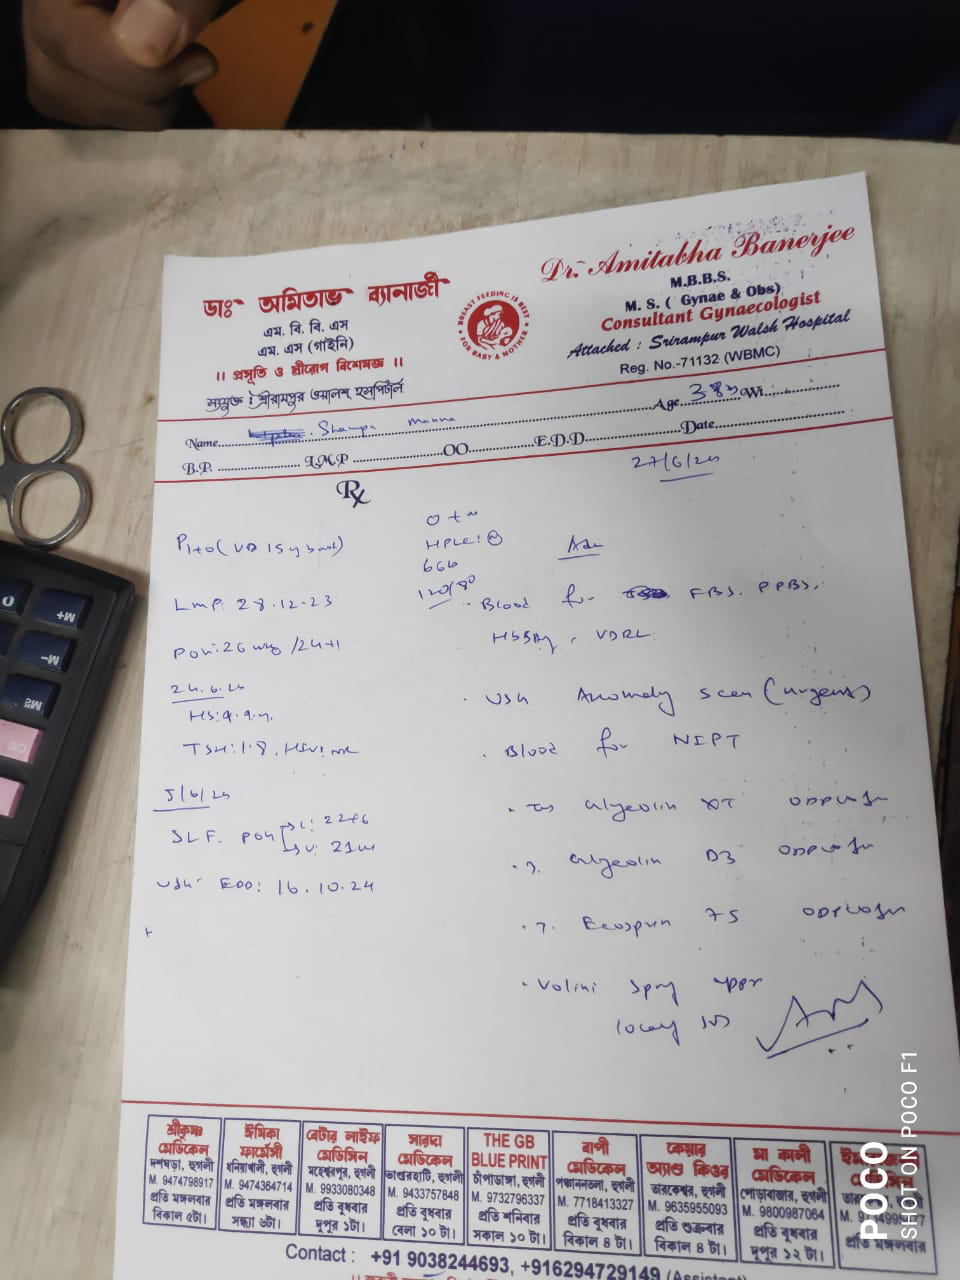 ডাঃ অমিতাভ ব্যানার্জী
এম. বি. বি. এস
এম. এস (গাইনি)
।। প্রসূতি ও স্ত্রীরোগ বিশেষজ্ঞ ।।
সংযুক্ত : শ্রীরামপুর ওয়ালশ হসপিটাল
BREAST FEEDING IS BEST
FOR BABY & MOTHER
Dr. Amitabha Banerjee
M.B.B.S.
M. S. ( Gynae & Obs)
Consultant Gynaecologist
Attached : Srirampur Walsh Hospital
Reg. No.-71132 (WBMC)
Name Shampa Manna Age 38y Wt.
B.P. L.M.P OO E.D.D Date
27/6/24
Rx
P1+0 (VD 15 y back)
LMP: 28.12.23
POG: 26 wks /24+1
24.6.24
Hb: 9.9
TSH: 1.8, HIV: NR
5/6/24
SLF. POG L: 22+6
U: 21w
USG EDD: 16.10.24
O +ve
HPLC: N
66
120/80
Adv
Blood for FBS, PPBS,
HBSAg, VDRL
USG Anomaly scan (urgent)
Blood for NIPT
XT
D3
Ecosprin 75
Volini spray
শ্রীকৃষ্ণ মেডিকেল
দশঘড়া, হুগলী
M. 9474798917
প্রতি মঙ্গলবার
বিকাল ৫টা।
ঈশিকা ফার্মেসী
ধনিয়াখালী, হুগলী
M. 9474364714
প্রতি মঙ্গলবার
সন্ধ্যা ৬টা।
বেটার লাইফ মেডিসিন
মহেশ্বরপুর, হুগলী
M. 9933080348
প্রতি বুধবার
দুপুর ১টা।
সারদা মেডিকেল
ভান্ডারহাটি, হুগলী
M. 9433757848
প্রতি বুধবার
বেলা ১০ টা।
THE GB BLUE PRINT
চাঁপাডাঙ্গা, হুগলী
M. 9732796337
প্রতি শনিবার
সকাল ১০ টা।
বাপী মেডিকেল
পঞ্চাননতলা, হুগলী
M. 7718413327
প্রতি বুধবার
বিকাল ৪ টা।
কেয়ার অ্যান্ড কিওর
তারকেশ্বর, হুগলী
M. 9635955093
প্রতি শুক্রবার
বিকাল ৪ টা।
মা কালী মেডিকেল
পোড়াবাজার, হুগলী
M. 9800987064
প্রতি বুধবার
দুপুর ১২ টা।
প্রতি মঙ্গলবার
Contact : +91 9038244693, +916294729149 (Assistant)
M+
M-
CE
POCO
SHOT ON POCO F1